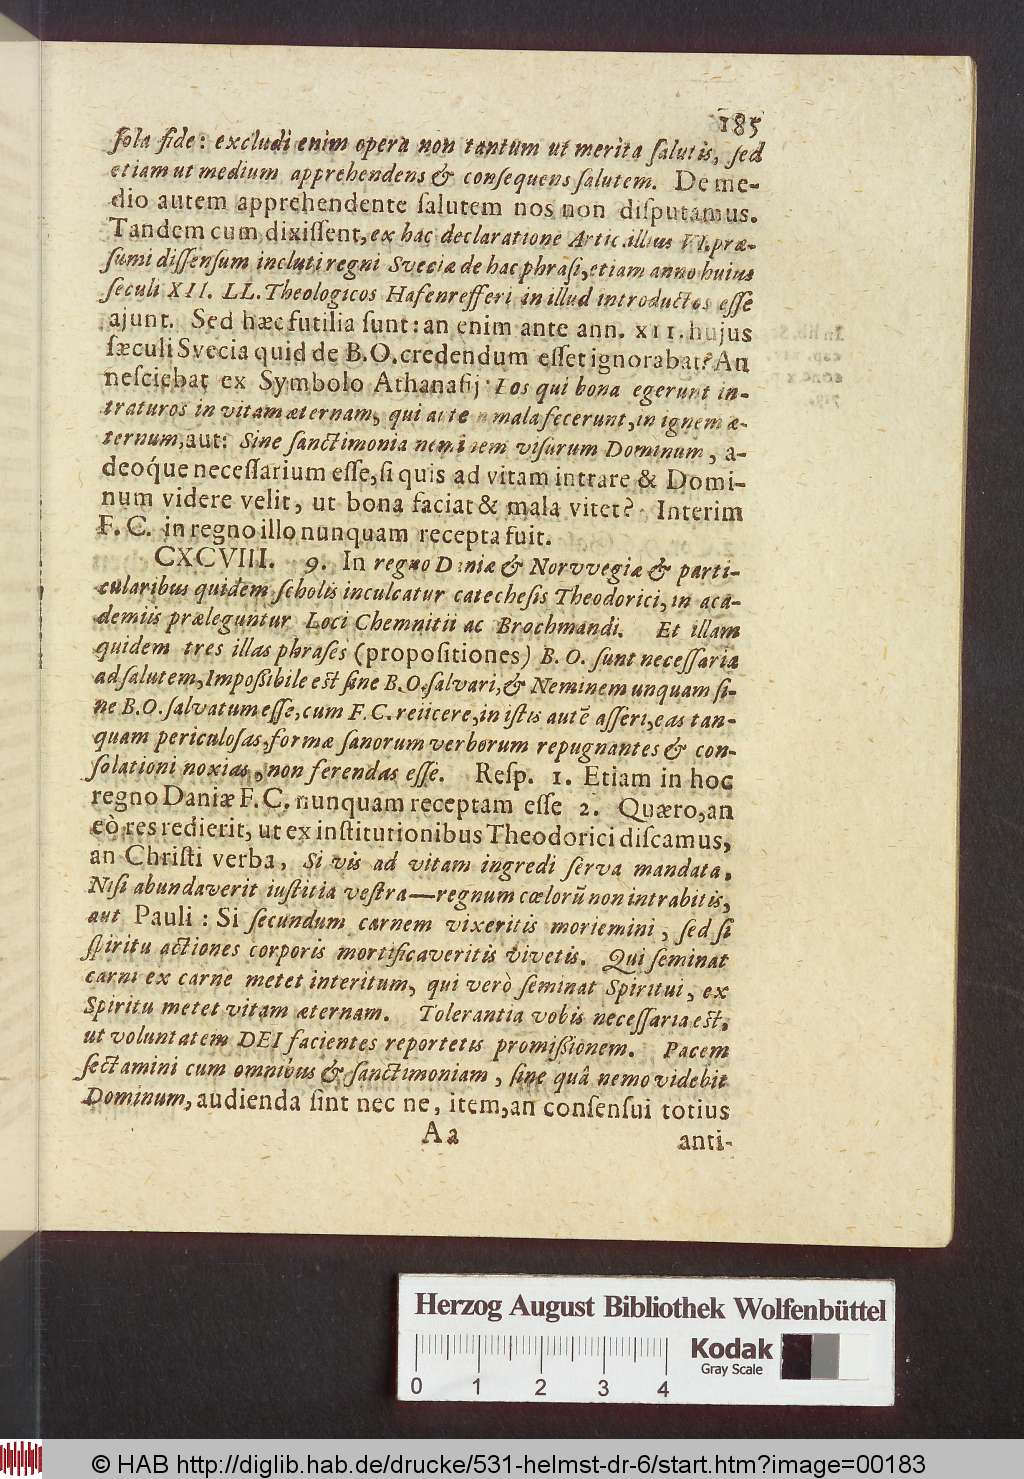 185
ſola fide: excludi enim opera non tantum ut merita ſalutis, ſed
etiam ut medium apprehendens & conſequens ſalutem. De me-
dio autem apprehendente ſalutem nos non diſputamus.
Tandem cum dixiſſent, ex hac declaratione Artic. illius VI. præ-
ſumi diſſenſum incluti regni Sveciæ de hac phraſi, etiam anno huius
ſeculi XII. LL. Theologicos Hafenrefferi in illud introductos eſſe
ajunt. Sed hæc futilia ſunt: an enim ante ann. XII. hujus
ſæculi Svecia quid de B.O. credendum eſſet ignorabat? An
neſciebat ex Symbolo Athanaſij Eos qui bona egerunt in-
traturos in vitam æternam, qui autem mala fecerunt, in ignem æ-
ternum, aut: Sine ſanctimonia neminem viſurum Dominum, a-
deoq́ue neceſſarium eſſe, ſi quis ad vitam intrare & Domi-
num videre velit, ut bona faciat & mala vitet? Interim
F. C. in regno illo nunquam recepta fuit.
CXCVIII. 9. In regno Daniæ & Norvvegiæ & parti-
cularibus quidem ſcholis inculcatur catecheſis Theodorici, in aca-
demiis præleguntur Loci Chemnitii ac Brochmandi. Et illam
quidem tres illas phraſes (propoſitiones) B. O. ſunt neceſſaria
ad ſalutem, Impoßibile eſt ſine B.O. ſalvari, & Neminem unquam ſi-
ne B.O. ſalvatum eſſe, cum F. C. reiicere, in iſtis autē aſſeri, eas tan-
quam periculoſas, formæ ſanorum verborum repugnantes & con-
ſolationi noxias, non ferendas eſſe. Reſp. 1. Etiam in hoc
regno Daniæ F. C. nunquam receptam eſſe 2. Quæro, an
eò res redierit, ut ex inſtitutionibus Theodorici diſcamus,
an Chriſti verba, Si vis ad vitam ingredi ſerva mandata.
Niſi abundaverit iuſtitia veſtra—regnum cœlorū non intrabitis,
aut Pauli: Si ſecundum carnem vixeritis moriemini, ſed ſi
ſpiritu actiones corporis mortificaveritis vivetis. Qui ſeminat
carni ex carne metet interitum, qui verò ſeminat Spiritui, ex
Spiritu metet vitam æternam. Tolerantia vobis neceſſaria eſt,
ut voluntatem DEI facientes reportetis promißionem. Pacem
ſectamini cum omnibus & ſanctimoniam, ſine quâ nemo videbit
Dominum, audienda ſint nec ne, item, an conſenſui totius
Aa
anti-
Herzog August Bibliothek Wolfenbüttel
Kodak
Gray Scale
0 1 2 3 4
© HAB http://diglib.hab.de/drucke/531-helmst-dr-6/start.htm?image=00183